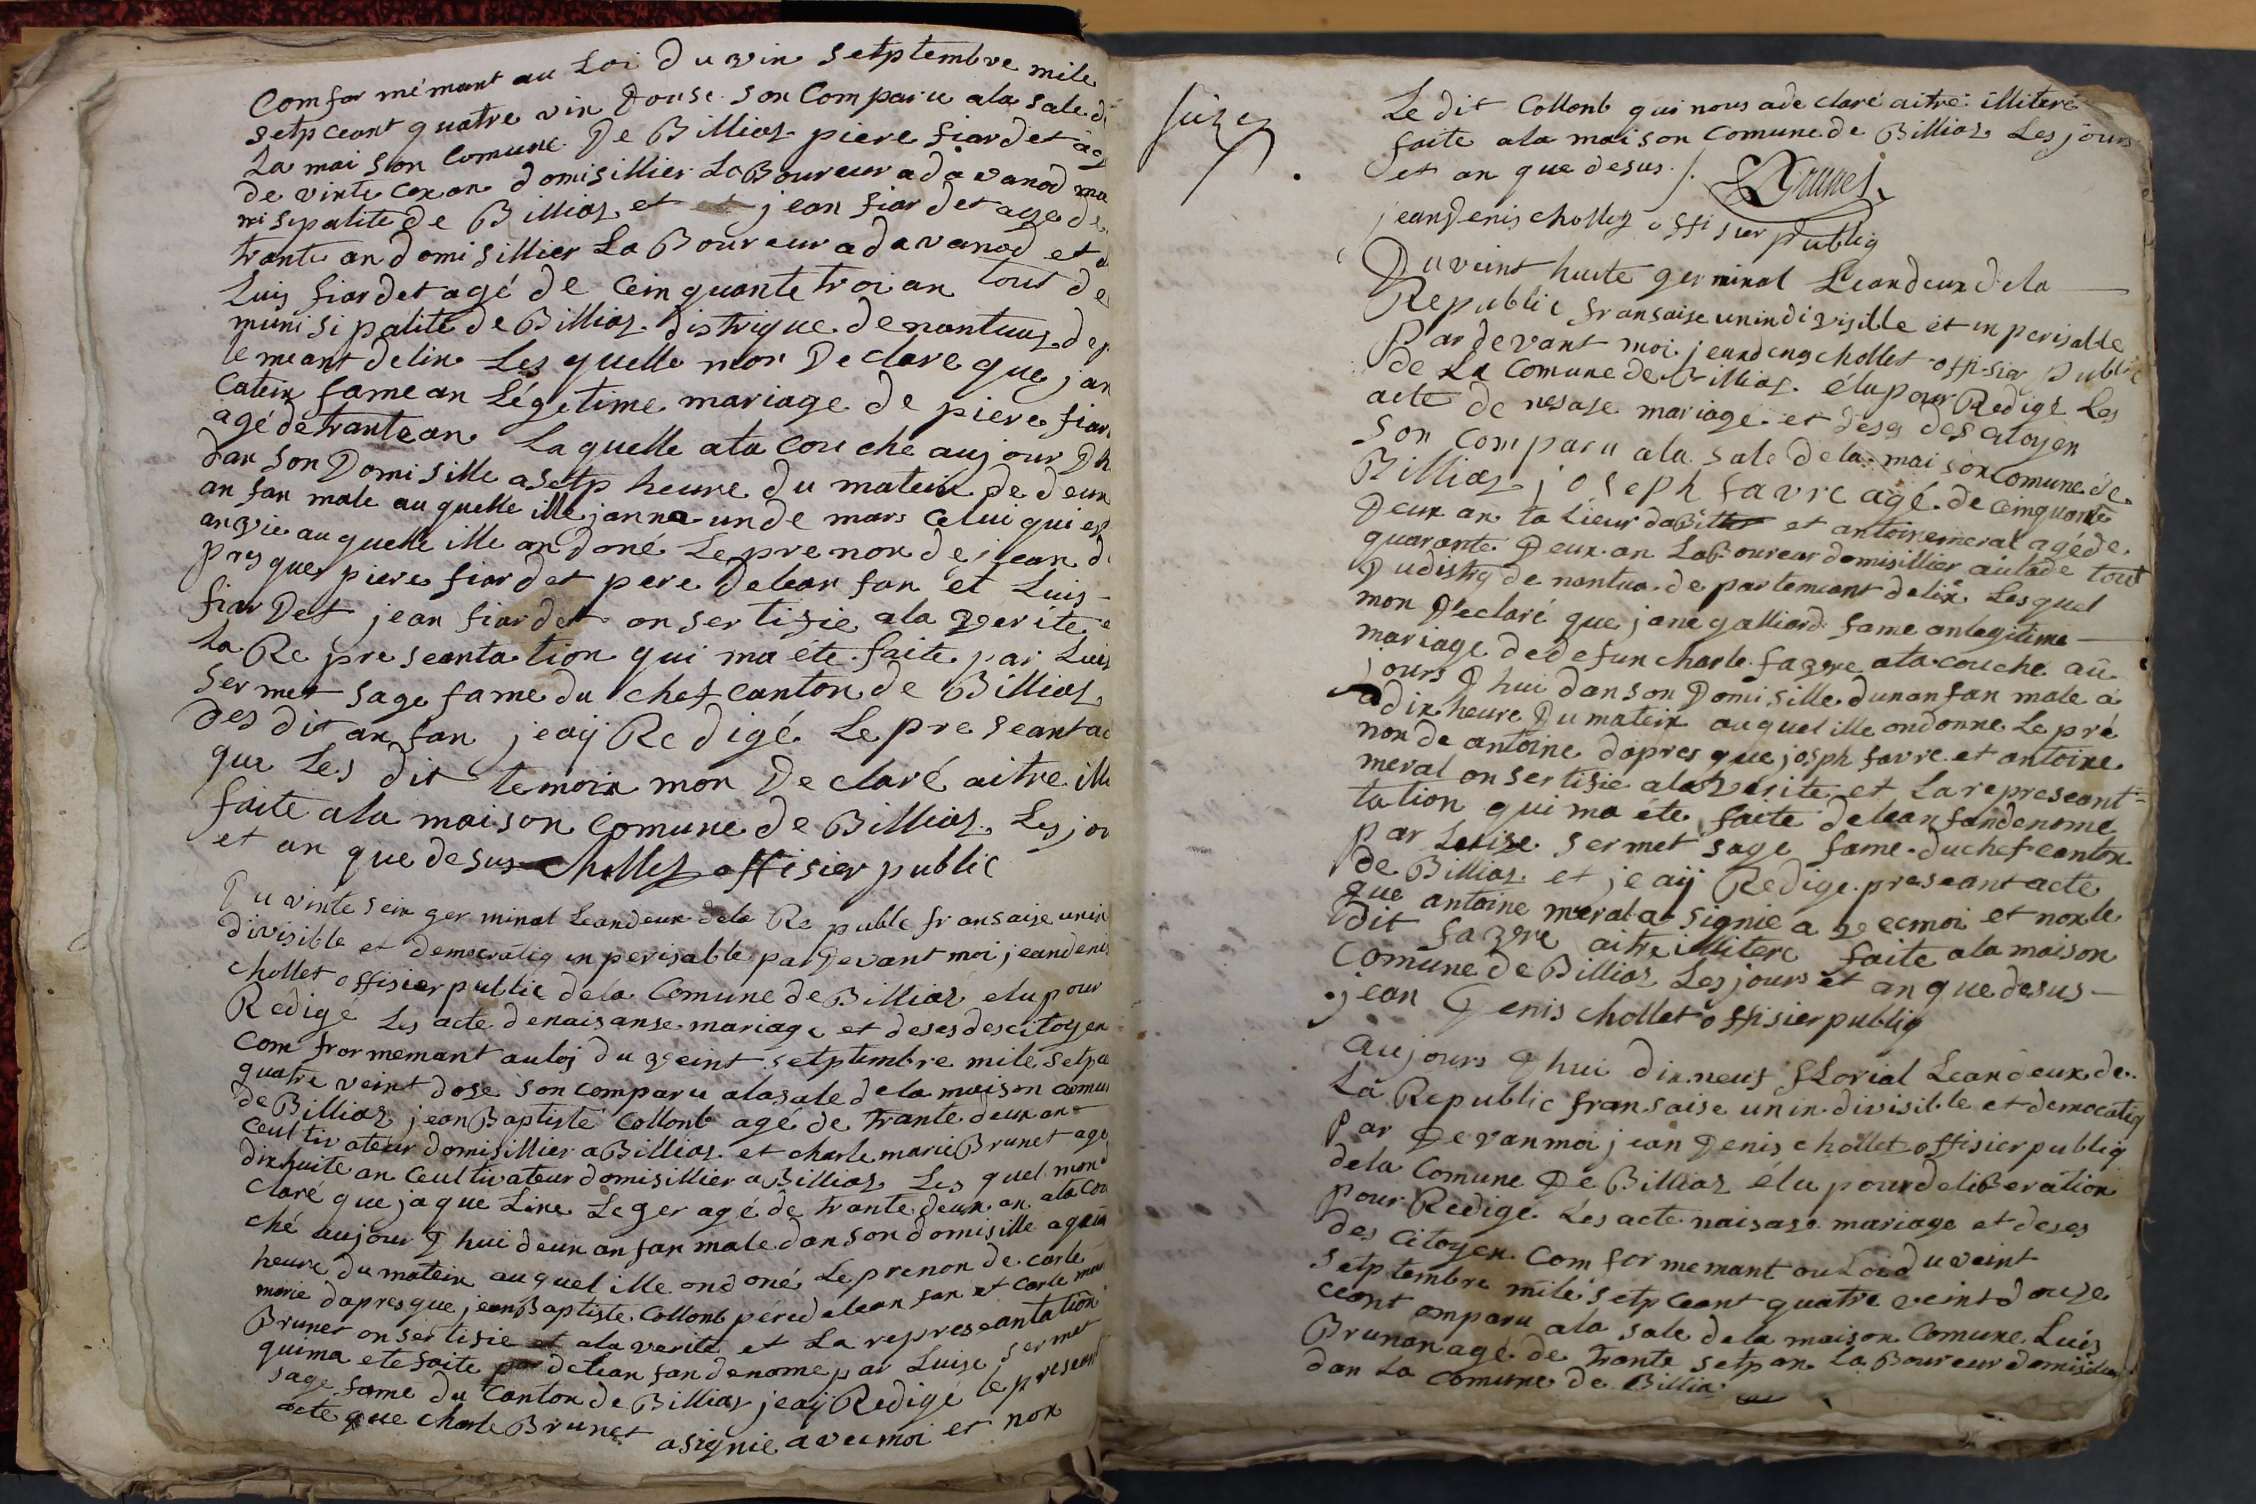 Comfor mémant au Loi Du vin setptembre mile
setpceant quatre vin Douse son Comparu ala sale d
La mai son Comune De Billiaz piere fiardet ag
de vinte cin an domisillier LaBoureur ada vanod mu
nisipalite de Billiaz et jean fiardet age de
trante an domisillier LaBoureur ada vanod et a
Luis fiardet agé de Ceinquante troi an tout de
munisipalite de Billiaz distrique de nantuas dep
temeant delin Les quelle mon De clare que jan
Catein fame an Légetime mariage de piere fiar
agé de trante an Laquelle ata couche aujour Dh
dan son Domisille a setp heure du matein de deux
an fan male au quelle ille janna un de mars Celui qui est
anvie auquelle ille an doné Leprenon de jean d
pays que piere fiardet pere delean fan et Luis
fiardet jean fiardet on sertifie ala verité e
La Re pre seanta tion qui ma été faite par Luis
sermet sage fame du chef canton de Billiaz
des dit an fan jeaÿ Redigé Le pre seant ac
que Les dit temoin mon De claré aitre ille
faite ala maison comune de Billiaz Les jou
et an que desus chollez offisier public
Du vinte sein germinal Leandeux dela Republc fransaise unin
divisible et democratiq inperisable par Devant moi jeandenis
chollet offisier public dela Comune de Billiaz elu pour
Redige Les acte denaisanse mariage et deses descitoyen
Com frormemant auloj du veint setptembre mile setpce
quatre veint dose son comparu alasale dela maison comun
de Billiaz jean Baptiste Collonb agé de trante deux an
Ceultivateur domisillier a Billiaz et charle marie Brunet age
dixhuite an Ceultivateur domisillier a Billiaz Les quel mond
claré que jaque Line Leger agé de trante deux an ata cou
ché aujour D hui deux an fan male dan son domisille a
heure du matein auquel ille ondoné Le prenon de carle
marie dapres que jean Baptiste Collonb pére delean fan et Carle mar
Brunet on sertifie ala verité et La represeantation
quima ete faite delean fan denome par Luise sermet
sage fame du Canton de Billiaz jeaÿ Redigé le preseant
acte que charle Brunet a signie avecmoi et non
Le dit Collonb qui nous ade claré aitre illiteré
faite ala maison Comune de Billiaz Les jours
et an que desus
Brunet
jeanDenis chollez offisier publiq
Du veint huite germinal Leandeux dela
Republic fransaise unindivisible et inperisable
Par devant moi jeandenis chollet offisier public
de La Comune de Billiaz élu pour Redigé Les
acte de nesase mariage et deses des citoyen
son comparu ala sale dela maison Comune de
Billiaz joseph favre agé de ceinquante
Deux an talieur et antoine meral agéde
quarante Deux an LaBoureur domisillier tout
Dudistriq de nantua departemeant delin Lesquel
mon Declaré que jane galliard fame anlegitime
mariage dedefun charle favre ata couche au
jours D hui dan son Domisille dunan fan male a
a dix heure Du matein auquel ille ondonne Le pré
non de antoine dapres que josph favre et antoine
meral on sertifie alaverite et La represeant
tation qui ma éte faite delean fandenome
par Leuise sermet sage fame duchef canton
de Billiaz et jeaÿ Redige preseant acte
que antoine meral a signie a vecmoi et nonle
Dit favre aitre illitere faite ala maison
Comune de Billiaz Lesjours et an que desus
jean Denis chollet offisier publiq
aujours D hui dixneuf fLorial Leandeux de
La Republic fransaise unindivisible et democatiq
par Devanmoi jean Denis chollet offisier publiq
dela Comune De Billiaz élu pour deliBeration
pour Redigé Lés acte naisase mariage et deses
des Citoyen Com for memant ou Loi du veint
setptembre milé setp Ceant quatre veint douze
ceant omparu ala sale dela maison Comune Luis
Brunan agé de trante setp an LaBoureur domisilier
dan La comune de Billia